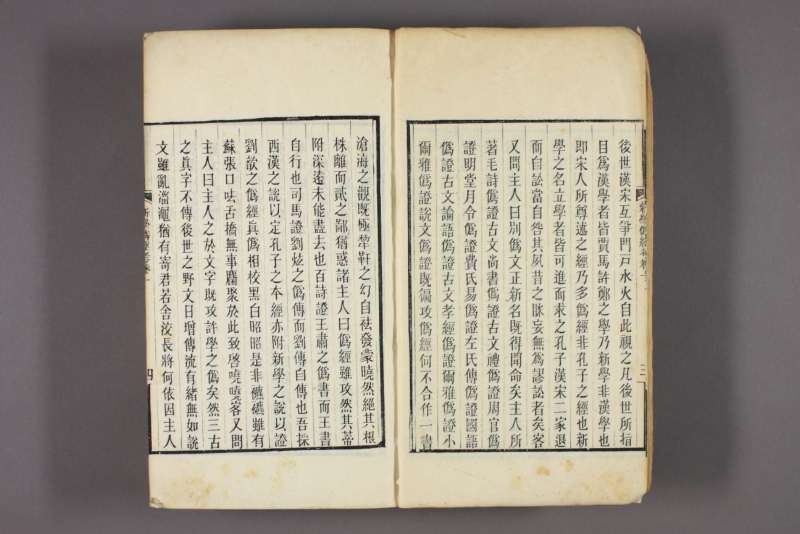 後世漢宋互爭門戶水火自此視之凡後世所指
目爲漢學者皆賈馬許鄭之學乃新學非漢學也
即宋人所尊述之經乃多僞經非孔子之經也新
學之名立學者皆可進而求之孔子漢宋二家退
而自訟當自咎其夙昔之眯妄無爲謬訟者矣客
又問主人曰別僞文正新名既得聞命矣主人所
著毛詩僞證古文尚書僞證古文禮僞證周官僞
證明堂月令僞證費氏易僞證左氏傳僞證國語
僞證古文論語僞證古文孝經僞證爾雅僞證小
爾雅僞證說文僞證既徧攻僞經何不合作一書
滄海之觀既極犂軒之幻自祛發蒙曉然絕其根
株離而貳之鄙猶惑諸主人曰僞經雖攻然其蒂
附深遠未能盡去也百詩證王肅之僞書而王書
自行也司馬證劉炫之僞傳而劉傳自傳也吾採
西漢之說以定孔子之本經亦附新學之說以證
劉歆之僞經眞僞相校黑白昭昭是非襵襵雖有
蘇張口呿舌撟無事麕聚於此致啓嘵嘵客又問
主人曰主人之於文字既攻許學之僞矣然三古
之眞字不傳後世之野文日增傳流有緒無如說
文雖亂淄澠猶有寄君若舍洨長將何依因主人
三
四